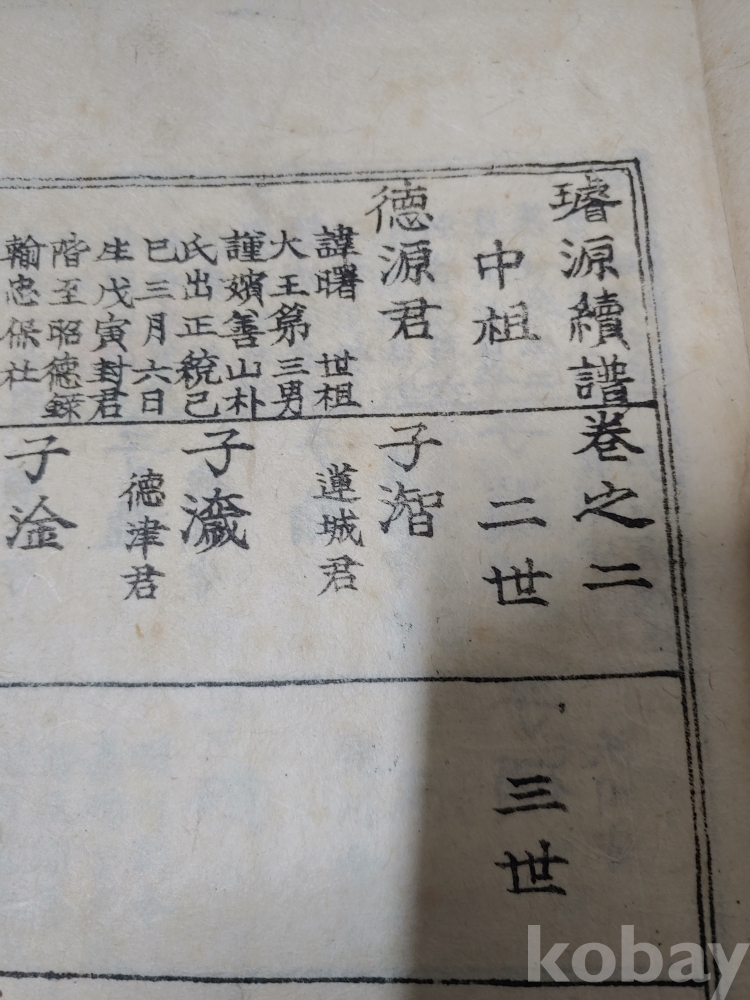 璿源續譜卷之二
中祖
二世
三世
德源君
諱曙 世祖
大王第三男
謹嬪善山朴
氏出正統己
巳三月六日
生戊寅封君
階至昭德錄
輸忠保社
子潪
蓮城君
子濊
德津君
子淦
kobay